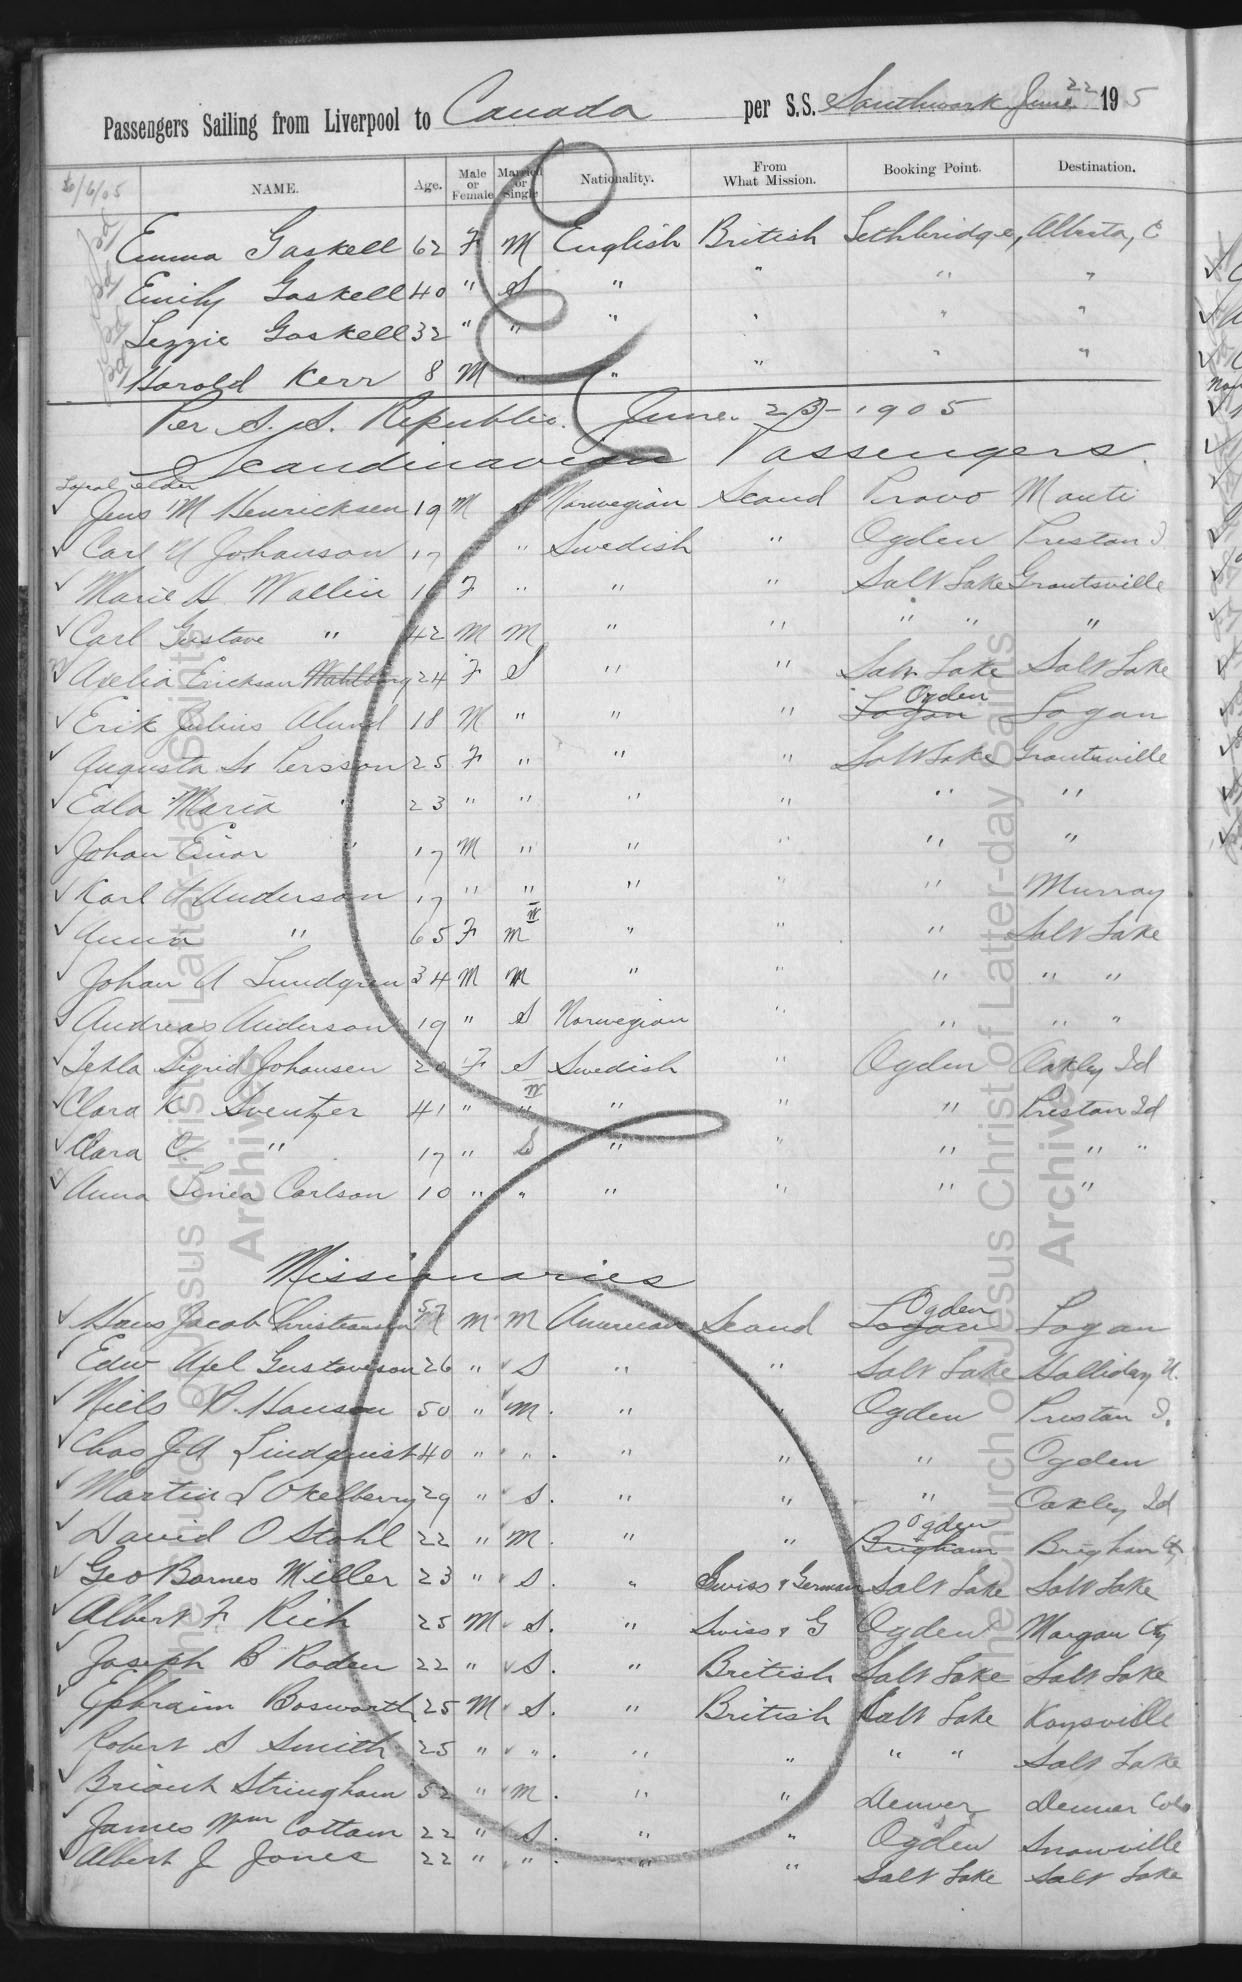 Passengers Sailing from Liverpool to Canada per S.S. Southwark June 22 1905
NAME. Age. Male or Female Married or Single Nationality. From What Mission. Booking Point. Destination.
Emma Gaskell 62 F M English British Lethbridge, Alberta, C
Emily Gaskell 40 " S " " " "
Lezzie Gaskell 32 " " " " " "
Harold Kerr 8 M " " " " "
Per S.S. Republic. June. 23 - 1905
Scandinavian Passengers.
Jens M Henricksen 19 M S Norwegian Scand Provo Manti
Carl U Johanson 17 " Swedish " Ogden Preston I
Marie H Wallin 16 F " " " Salt Lake Grantsville
Carl Gustave " 42 M M " " " " "
Axelia Erickson Wahlberg 24 F S " " Salt Lake Salt Lake
Erik Julius Alund 18 M " " " Logan Ogden Logan
Augusta S. Persson 25 F " " " Salt Lake Grantsville
Edla Maria " 23 " " " " " "
Johan Einar " 17 M " " " " "
Karl A Anderson 17 " " " " " Murray
Anna " 65 F m W " " " Salt Lake
Johan A Lundgren 34 M M " " " " "
Andreas Anderson 19 " S Norwegian " " " "
Tekla Sigrid Johansen 20 F S Swedish " Ogden Oakley Id
Clara K Sventzer 41 " " W " " " Preston Id
Clara C " 17 " S " " " " "
Anna Linea Carlson 10 " " " " " "
Missionaries
Hans Jacob Christiansen 57 M M American Scand Logan Ogden Logan
Edw Axel Gustaveson 26 " S " " Salt Lake Holliday U.
Niels P. Hansen 50 " M. " " Ogden Preston I.
Chas J A Lindquist 40 " " " " " Ogden
Martin L Okelberry 29 " S. " " " Oakley Id
David O Stohl 22 " M. " " Brigham Ogden Brigham Cty
Geo Barnes Miller 23 " S. " Swiss & German Salt Lake Salt Lake
Albert F. Rich 25 M S. " Swiss & G Ogden Morgan Cty
Joseph B Roden 22 " S. " British Salt Lake Salt Lake
Ephraim Bosworth 25 M S. " British Salt Lake Kaysville
Robert S Smith 25 " " " " " " Salt Lake
Briant Stringham 52 " M. " " Denver Denver Colo
James Wm Cottam 22 " S. " " Ogden Snowville
Albert J Jones 22 " " " " Salt Lake Salt Lake
The Church of Jesus Christ of Latter-day Saints
Archives
The Church of Jesus Christ of Latter-day Saints
Archives